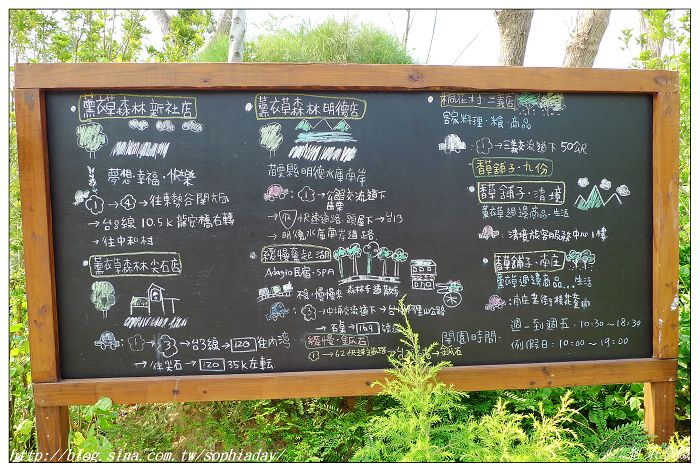 薰衣草森林 新社店
夢想·幸福·快樂
① → ④ → 往東勢谷關方向
→ 台8線 10.5k 龍安橋右轉
→ 往中和村
薰衣草森林 尖石店
① → 台3線 → 120 往內灣
→ 往尖石 → 120 35k左転
薰衣草森林 明德店
苗栗縣明德水庫南岸
① → 公館交流道下
苗栗
→ 72 快速道路 頭屋下 → 台13
→ 明德水庫南岸道路
緩慢奮起湖
Adagio民宿·SPA
森林步道散步
→ 中埔交流道下 → 台18
→ 石桌 → 169
緩慢·金瓜石
① → 62 快速道路 → 金瓜石
桐花村 三義園
客家料理·糧·商品
① → 三義交流道下 50公尺
香草舖子·九份
香草舖子·清境
薰衣草週邊商品·生活
清境旅客服務中心1樓
香草舖子·南庄
薰衣草週邊商品...生活
南庄老街
開園時間·
週一到週五·10:30~18:30
例假日·10:00~19:00
http://blog.sina.com.tw/sophiaday/